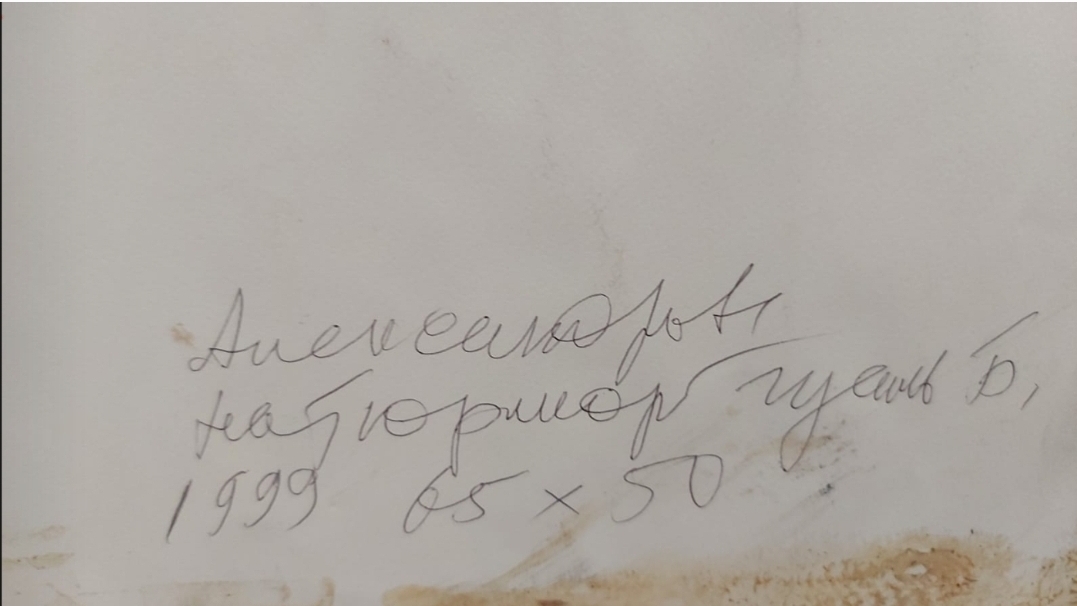 Александров
натюрморт гуашь Б,
1999 65 х 50